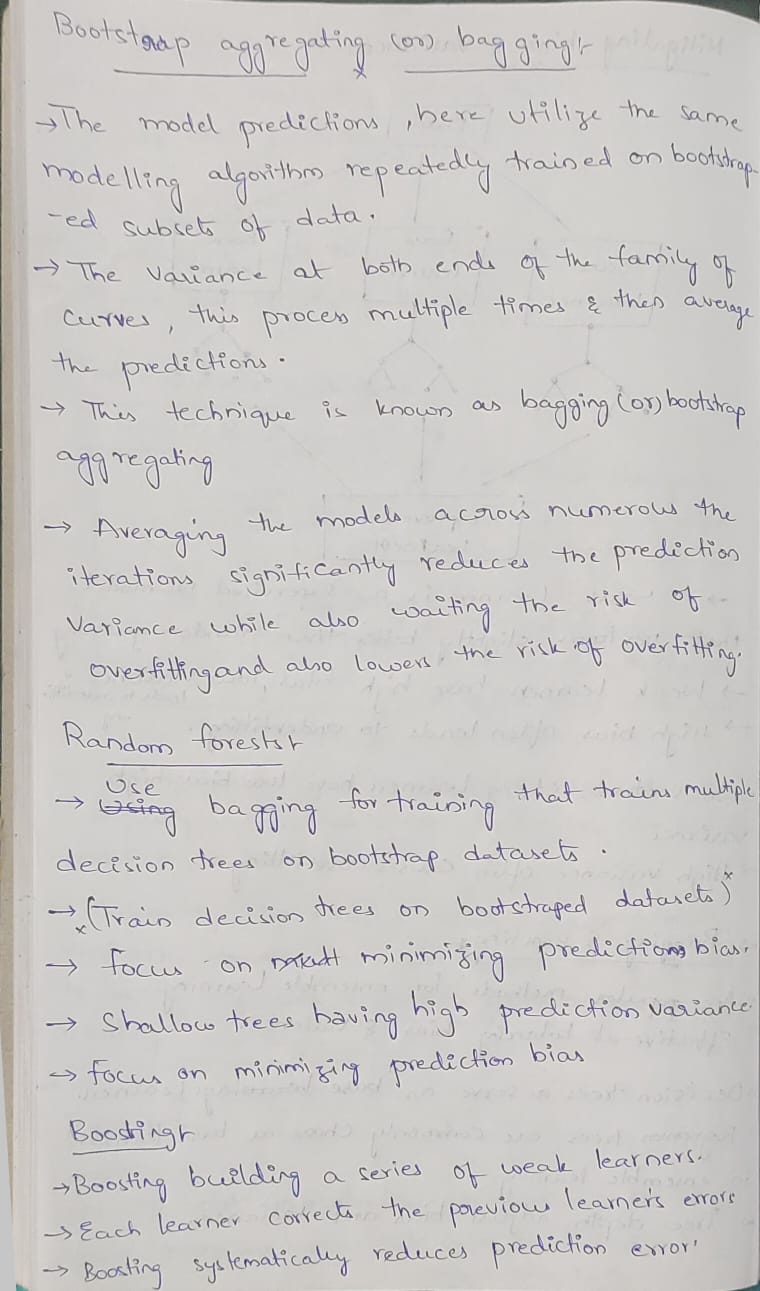 Bootstrap aggregating (or) bagging:-
→The model predictions, here utilize the same
modelling algorithm repeatedly trained on bootstrap
-ed subsets of data.
→ The variance at both ends of the family of
curves, this process multiple times & then average
the predictions.
→ This technique is known as bagging (or) bootstrap
aggregating
→ Averaging the models across numerous the
iterations significantly reduces the prediction
variance while also waiting the risk of
overfitting and also lowers the risk of overfitting.
Random forests:-
Use
→ Using bagging for training that trains multiple
decision trees on bootstrap datasets.
→ x(Train decision trees on bootstraped datasets)x
→ focus on minimizing predictions bias.
→ Shallow trees having high prediction variance.
→ focus on minimizing prediction bias
Boosting:-
→Boosting building a series of weak learners.
→ Each learner corrects the previous learner's errors
→ Boosting systematically reduces prediction error.